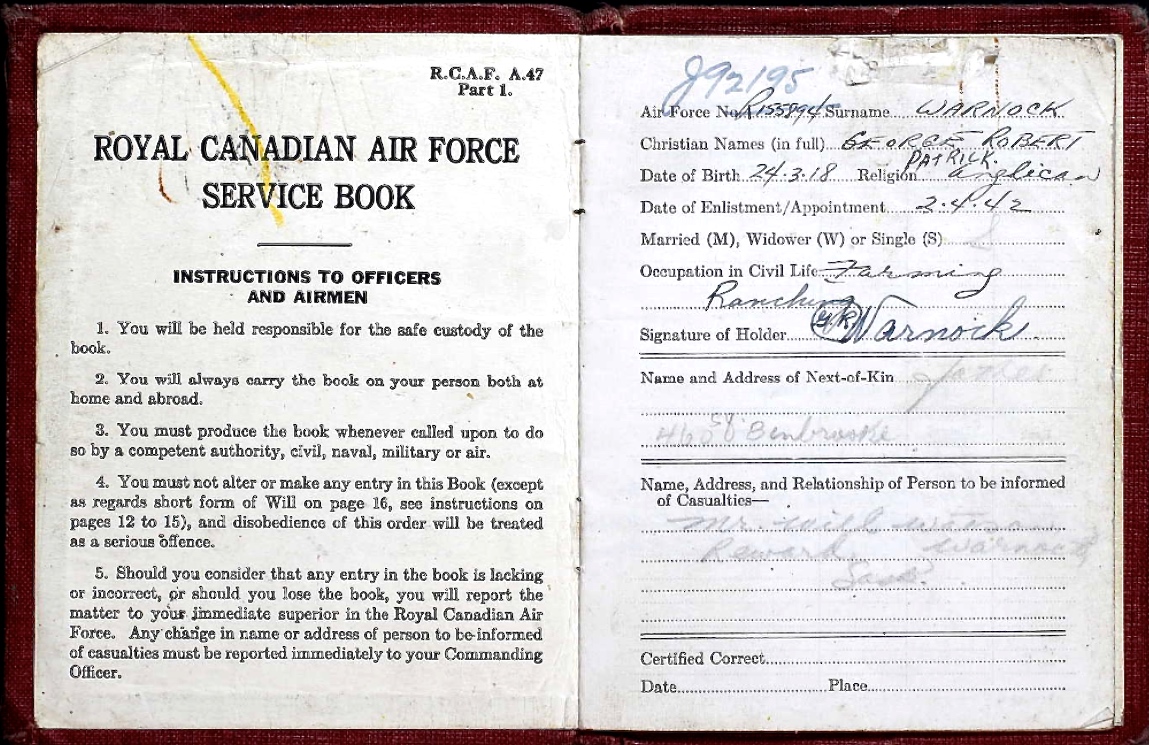 R.C.A.F. A.47
Part 1.
ROYAL CANADIAN AIR FORCE
SERVICE BOOK
INSTRUCTIONS TO OFFICERS
AND AIRMEN
1. You will be held responsible for the safe custody of the
book.
2. You will always carry the book on your person both at
home and abroad.
3. You must produce the book whenever called upon to do
so by a competent authority, civil, naval, military or air.
4. You must not alter or make any entry in this Book (except
as regards short form of Will on page 16, see instructions on
pages 12 to 15), and disobedience of this order will be treated
as a serious offence.
5. Should you consider that any entry in the book is lacking
or incorrect, or should you lose the book, you will report the
matter to your immediate superior in the Royal Canadian Air
Force. Any change in name or address of person to be informed
of casualties must be reported immediately to your Commanding
Officer.
J92195
Air Force No. Surname WARNOCK
Christian Names (in full) GEORGE ROBERT
PATRICK.
Date of Birth 24.3.18 Religion Anglican
Date of Enlistment/Appointment 2.4.42
Married (M), Widower (W) or Single (S) S
Occupation in Civil Life Farming
Ranching
Signature of Holder GR Warnock
Name and Address of Next-of-Kin
Name, Address, and Relationship of Person to be informed
of Casualties—
Mr. Will
Reward. Warnock
Sask.
Certified Correct
Date Place